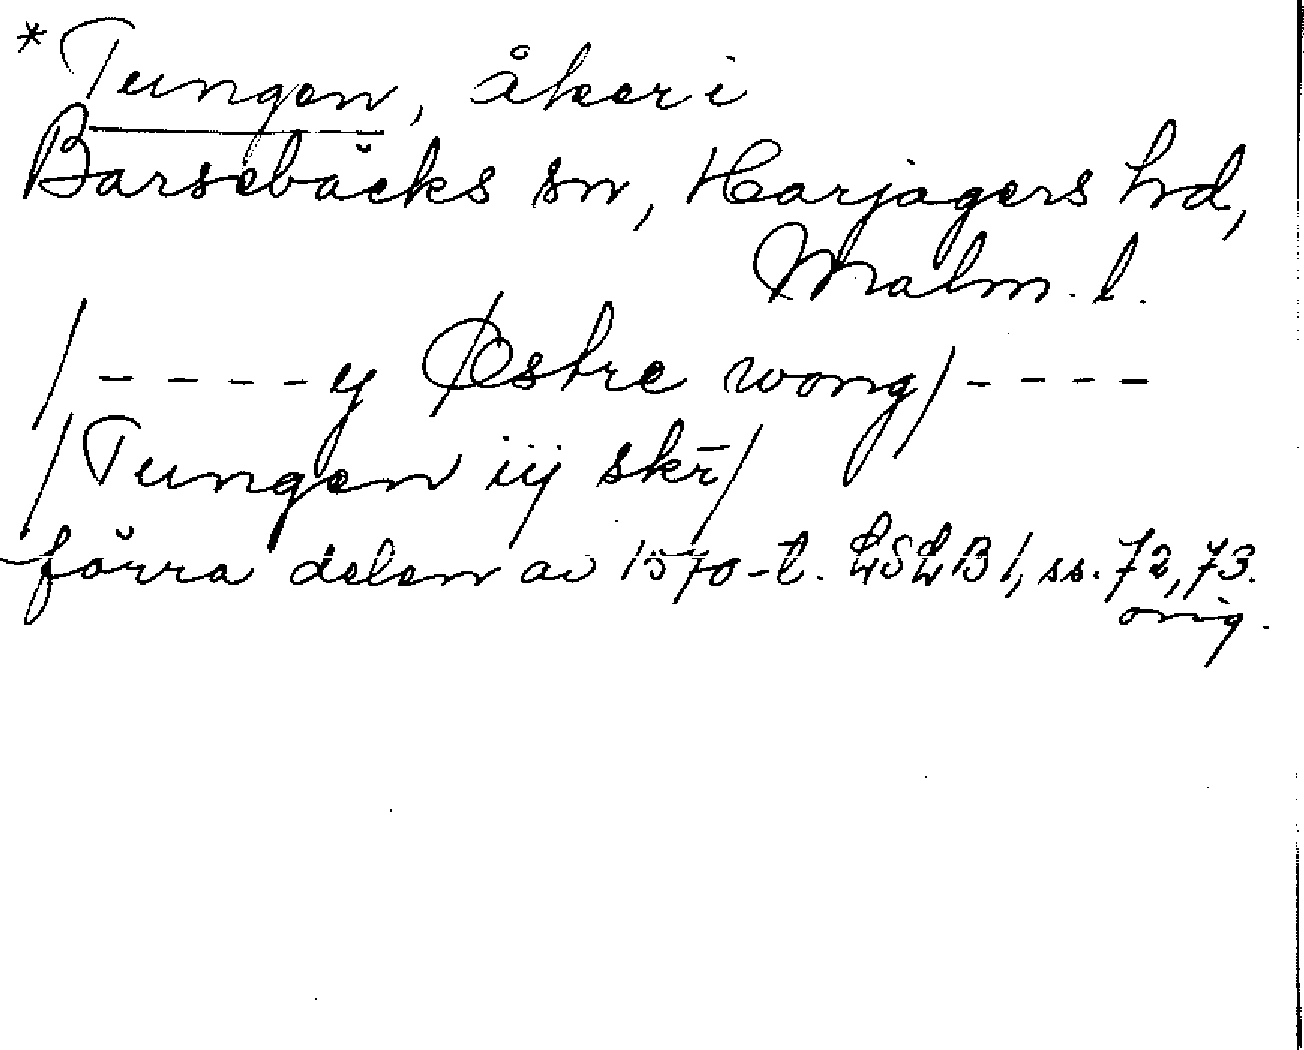 *Tungen, åker i
Barsebäcks sn, Harjagers hd,
Malm. l.
/ - - - - y Østre wong/ - - - -
/Tungen iij skr̄/
förra delen av 1570-t. LSLB 1, ss. 72, 73.
orig.